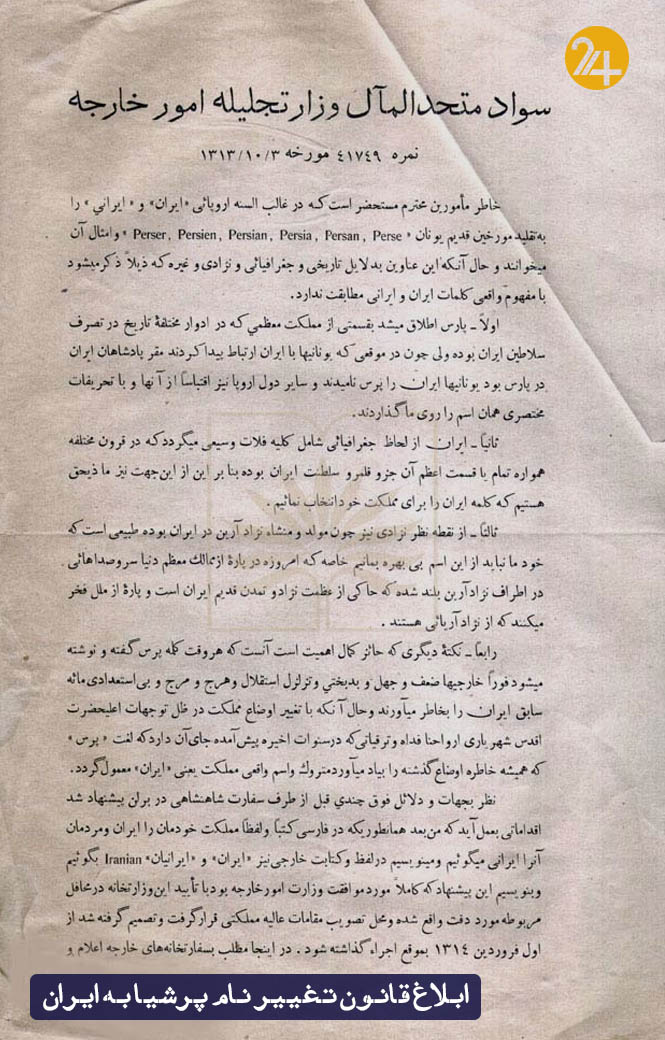 24
سواد متحدالمآل وزارتجلیله امور خارجه
نمره ٤١٧٤٩ مورخه ۱۳۱۳/۱۰/۳
خاطر مأمورین محترم مستحضر است که در غالب السنه اروپائی «ایران» و «ایرانی» را
به تقلید مورخین قدیم یونان « Perser, Persien, Persian, Persia, Persan, Perse » وامثال آن
میخوانند و حال آنکه این عناوین بدلایل تاریخی و جغرافیائی و نژادی و غیره که ذیلاً ذکر میشود
با مفهوم واقعی کلمات ایران و ایرانی مطابقت ندارد.
اولاً ـ پارس اطلاق میشد بقسمتی از مملکت معظمی که در ادوار مختلفهٔ تاریخ در تصرف
سلاطین ایران بوده ولی چون در موقعی که یونانیها با ایران ارتباط پیدا کردند مقر پادشاهان ایران
در پارس بود یونانیها ایران را پرس نامیدند و سایر دول اروپا نیز اقتباساً از آنها و با تحریفات
مختصری همان اسم را روی ما گذاردند.
ثانیاً ـ ایران از لحاظ جغرافیائی شامل کلیه فلات وسیعی میگردد که در قرون مختلفه
همواره تمام یا قسمت اعظم آن جزو قلمرو سلطنت ایران بوده بنا بر این از این جهت نیز ما ذیحق
هستیم که کلمه ایران را برای مملکت خود انتخاب نمائیم .
ثالثاً ـ از نقطه نظر نژادی نیز چون مولد و منشاء نژاد آرین در ایران بوده طبیعی است که
خود ما نباید از این اسم بی بهره بمانیم خاصه که امروزه در پارهٔ از ممالك معظم دنیا سر و صداهائی
در اطراف نژاد آرین بلند شده که حاکی از عظمت نژاد و تمدن قدیم ایران است و پارهٔ از ملل فخر
میکنند که از نژاد آریائی هستند .
رابعاً ـ نکتهٔ دیگری که حائز کمال اهمیت است آنست که هر وقت کلمه پرس گفته و نوشته
میشود فوراً خارجیها ضعف و جهل و بدبختی و تزلزل استقلال و هرج و مرج و بی استعدادی مائه
سابق ایران را بخاطر میآورند و حال آنکه با تغییر اوضاع مملکت در ظل توجهات اعلیحضرت
اقدس شهریاری ارواحنا فداه و ترقیاتی که در سنوات اخیره پیش آمده جای آن دارد که لغت « پرس »
که همیشه خاطره اوضاع گذشته را بیاد میآورد متروك واسم واقعی مملکت یعنی «ایران» معمول گردد.
نظر بجهات و دلائل فوق چندی قبل از طرف سفارت شاهنشاهی در برلن پیشنهاد شد
اقداماتی بعمل آید که من بعد همانطوریکه در فارسی کتباً و لفظاً مملکت خودمان را ایران و مردمان
آنرا ایرانی میگوئیم و مینویسیم در لفظ و کتابت خارجی نیز «ایران» و «ایرانیان» Iranian بگوئیم
وبنویسیم این پیشنهاد که کاملاً مورد موافقت وزارت امور خارجه بود با تأیید این وزارتخانه در محافل
مربوطه مورد دقت واقع شده و محل تصویب مقامات عالیه مملکتی قرار گرفت و تصمیم گرفته شد از
اول فروردین ١٣١٤ بموقع اجراء گذاشته شود . در اینجا مطلب بسفارتخانه‌های خارجه اعلام و
ابلاغ قانون تغییر نام پرشیا به ایران